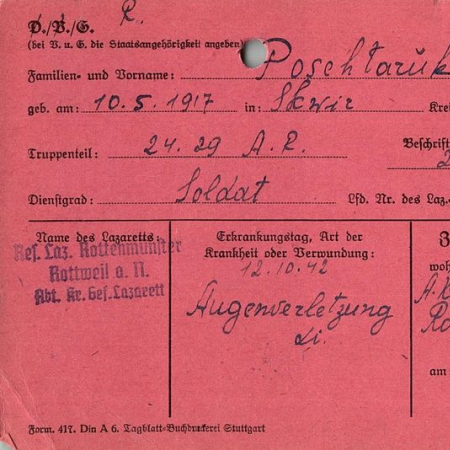 R.
D./V./G.
(bei V. u. G. die Staatsangehörigkeit angeben)
Familien- und Vorname: Poschtaruk
geb. am: 10.5.1917 in: Skwir Krei
Truppenteil: 24.29 A.R. Beschrift
Dienstgrad: Soldat Lfd. Nr. des Laz.
Name des Lazaretts:
Res. Laz. Rottenmünster
Rottweil a. N.
Abt. Kr. Gef. Lazarett
Erkrankungstag, Art der
Krankheit oder Verwundung:
12.10.42
Augenverletzung
li.
Z
woh
A.K
Ro
am
Form. 417. Din A 6. Tagblatt-Buchdruckerei Stuttgart